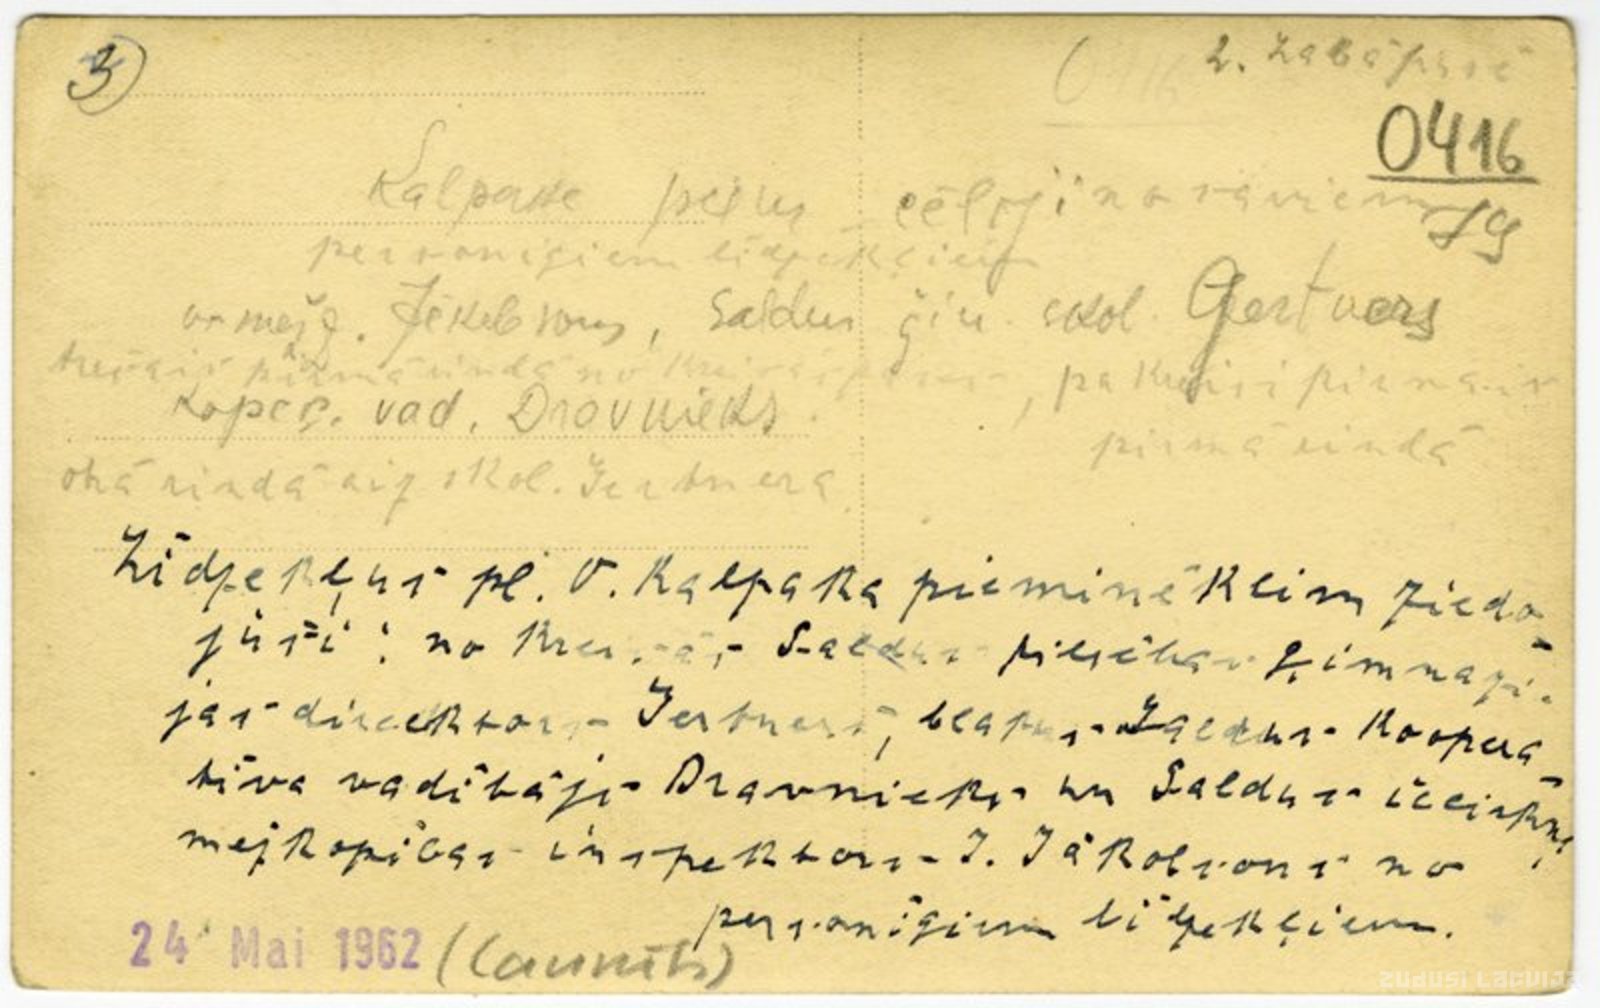 3
2. Labā pusē
0416
Kalpaka piem. cēluši no saviem
personīgiem līdzekļiem
virsmežz. Jēkabsons, Saldus ģim. skol. Gertners
trešais pirmā rindā no kreisās puses, pa kreisi pirmais
Koper. vad. Dravnieks.
pirmā rindā
otrā rindā aiz skol. Gertnera
Līdzekļus pl. O. Kalpaka piemineklim ziedo-
juši: no kreisās Saldus pilsētas ģimnāzi-
jas direktors Gertners, blakus Saldus Koopera-
tīva vadītājs Dravnieks un Saldus iecirkņa
mežkopības inspektors J. Jākobsons no
personīgiem līdzekļiem.
24 Mai 1962 (Launitz)
ZUDUSI LATVIJA